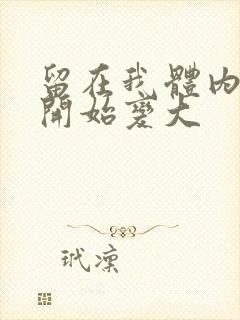 留在我體內
開始變大
玳凜